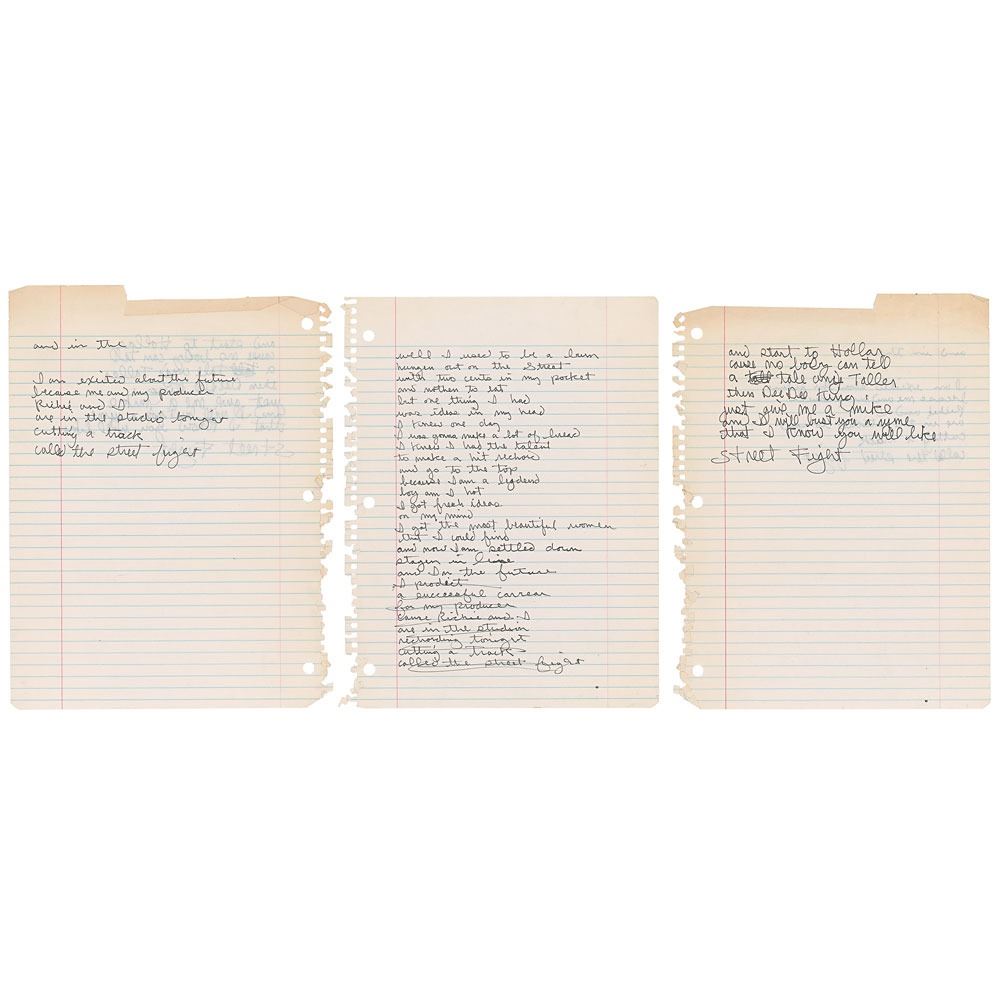 and in the
I am excited about the future
because me and my producer
Richie and I
are in the studio tonight
cutting a track
called the street fright
well I used to be a bum
hungen out on the Street
with two cents in my pocket
and nothen to eat
but one thing I had
was ideas in my head
I knew one day
I was gonna make a lot of bread
I knew I had the talent
to make a hit rechord
and go to the top
because I am a legdend
boy am I hot
I got fresh ideas
on my mind
I got the most beautiful women
that I could find
and now I am settled down
stayen in line
and I'm the future
I prodect
a successful carrear
for my producer
cause Richie and I
are in the studion
rechording tonight
cutting a track
called the street fight
and start to Hollar
cause no body can tell
a tale any Taller
then Dee Dee King
just give me a mike
and I will bust you a ryme
that I know you will like
Street Fight